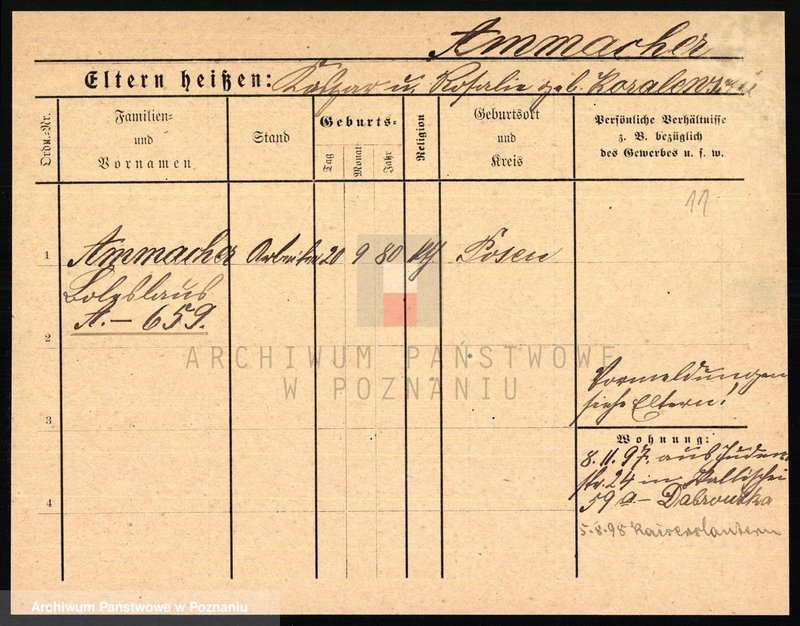 Ammacher
Eltern heißen: Kaspar u. Rosalie geb. Koralewski
Ordn.-Nr.
Familien-
und
Vornamen
Stand
Geburts-
Tag
Monat
Jahr
Religion
Geburtsort
und
Kreis
Persönliche Verhältnisse
z. B. bezüglich
des Gewerbes u. s. w.
11
1 Ammacher Arbeiter 20 9 80 kth Posen
Boleslaus
A.— 659.
2
3
4
Vormeldungen
siehe Eltern!
Wohnung:
8.11.97. aus Juden-
str. 24 in Wallischei
59 a— Dabrowska
5.8.98 Kaiserslautern
ARCHIWUM PAŃSTWOWE
W POZNANIU
Archiwum Państwowe w Poznaniu